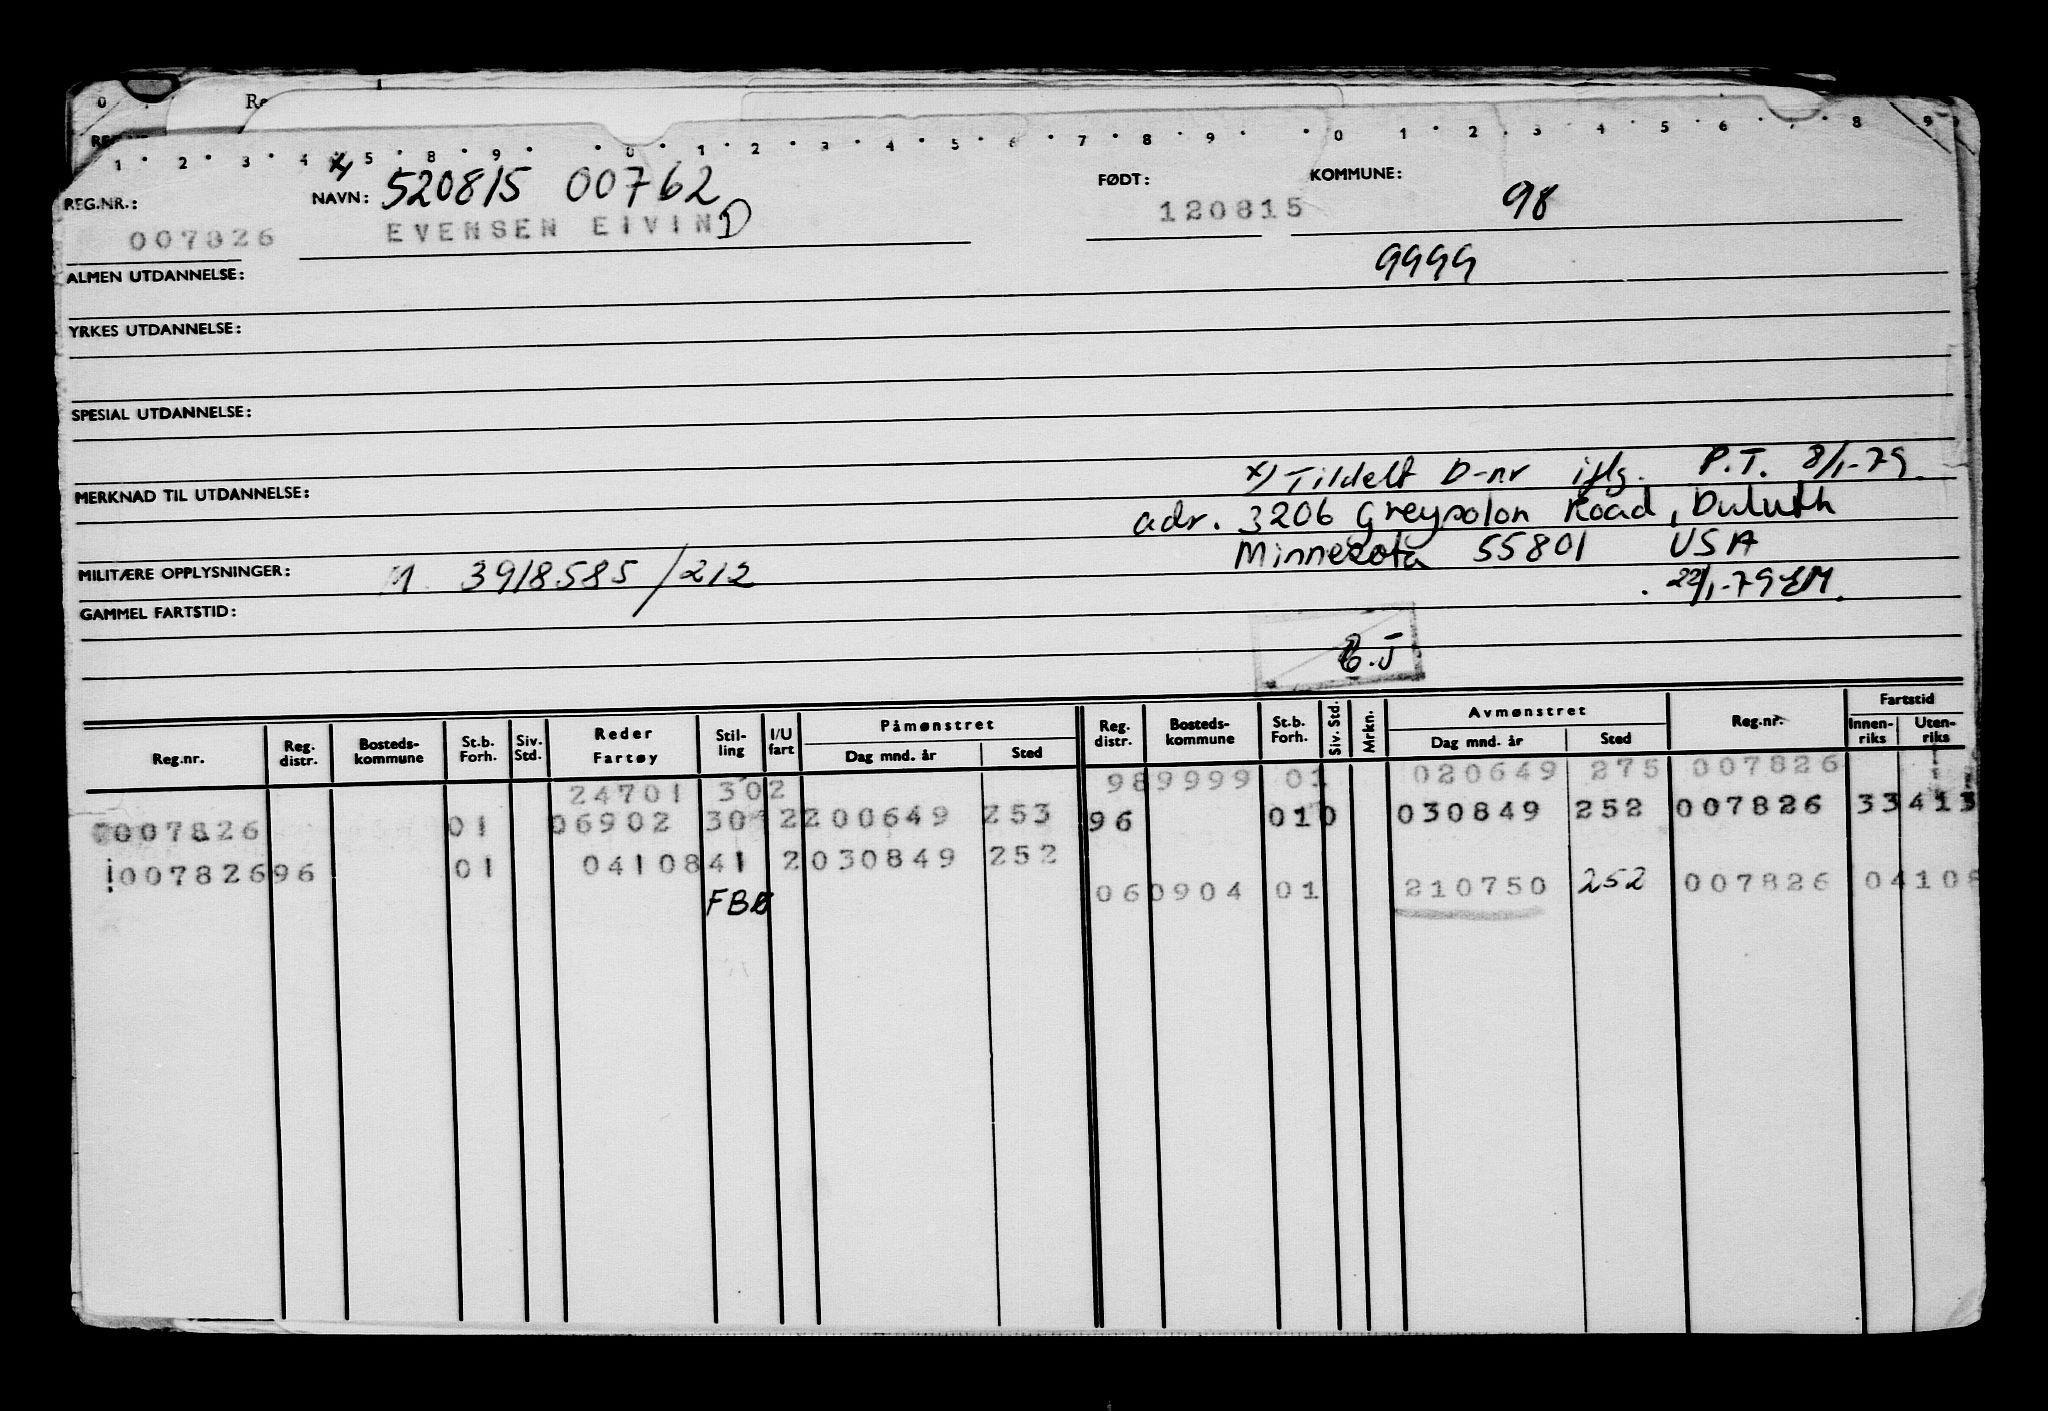 0 Re
1 · 2 · 3 · 4 · 5 · 8 · 9 · · 0 · 1 · 2 · 3 · 4 · 5 · 6 · 7 · 8 · 9 · · 0 · 1 · 2 · 3 · 4 · 5 · 6 · 7 · 8 9
REG.NR.: x) NAVN: 520815 00762 FØDT: KOMMUNE: 98
007826 EVENSEN EIVIND 120815
ALMEN UTDANNELSE: 9999
YRKES UTDANNELSE:
SPESIAL UTDANNELSE:
x) Tildelt D-nr iflg. P.T. 8/1-79.
MERKNAD TIL UTDANNELSE:
adr. 3206 Greysolon Road, Duluth
Minnesota 55801 USA
MILITÆRE OPPLYSNINGER: M 3918585/212
22/1-79 EM.
GAMMEL FARTSTID:
B.J
Reg.nr. Reg. distr. Bosteds- kommune St.b. Forh. Siv. Std. Reder Fartøy Stil- ling I/U fart Påmønstret Dag mnd. år Sted Reg. distr. Bosteds- kommune St.b. Forh. Siv. Std. Mrkn. Avmønstret Dag mnd. år Sted Reg.nr. Fartstid Innen- riks Uten- riks
24701 302 989999 01 020649 275 007826
007826 01 06902 30 2 200649 253 96 010 030849 252 007826 33 413
00782696 01 0410841 2 030849 252
FBØ 060904 01 210750 252 007826 04108